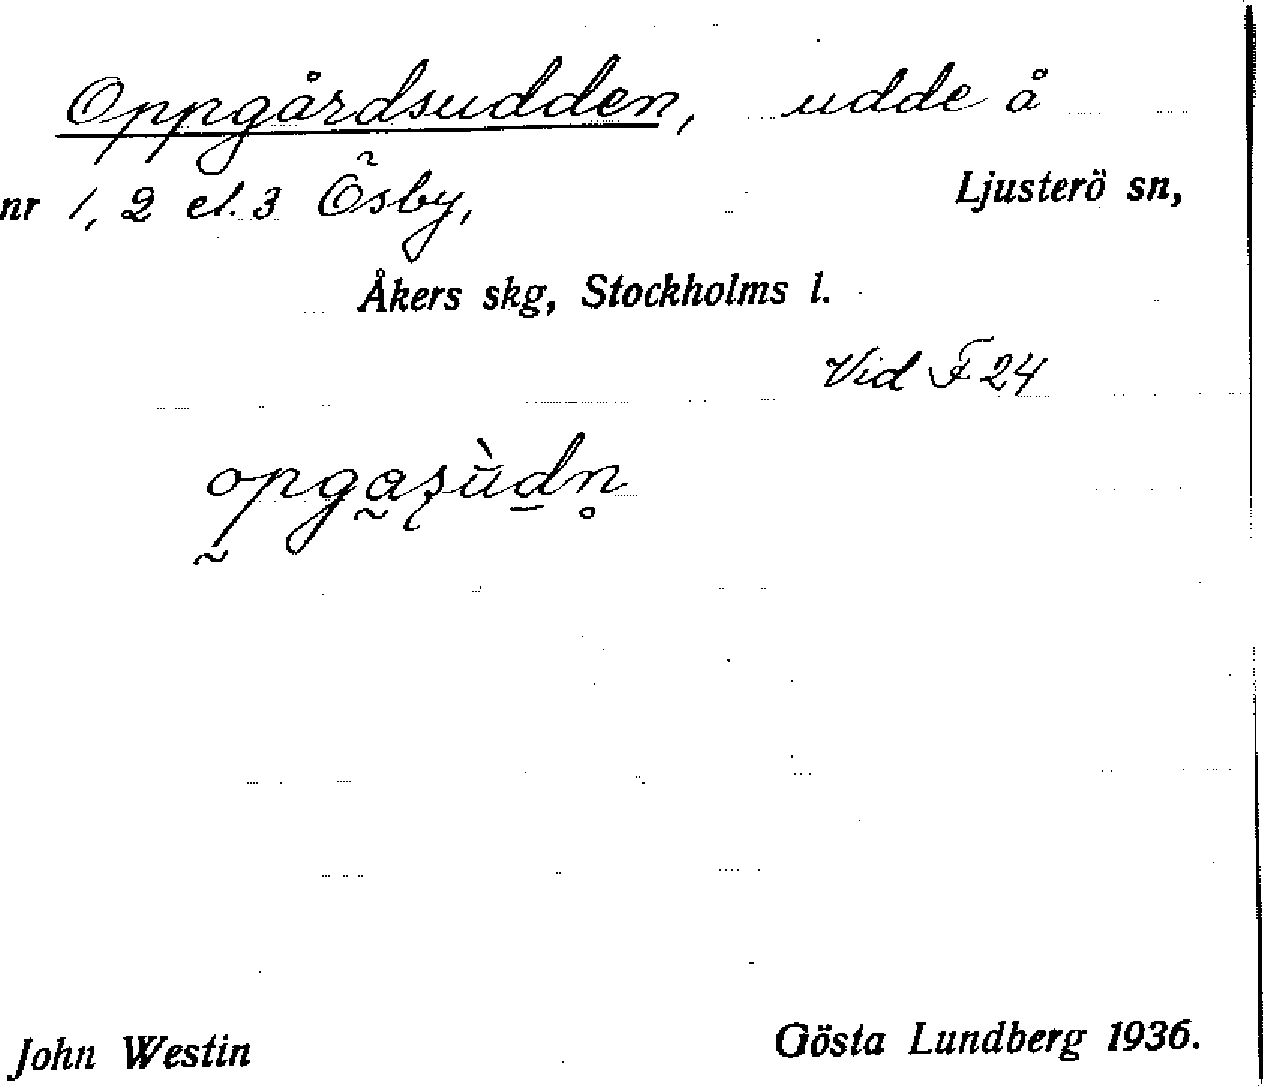 Oppgårdsudden, udde å
nr 1, 2 el. 3 Ösby, Ljusterö sn,
Åkers skg, Stockholms l.
Vid F 24
John Westin Gösta Lundberg 1936.